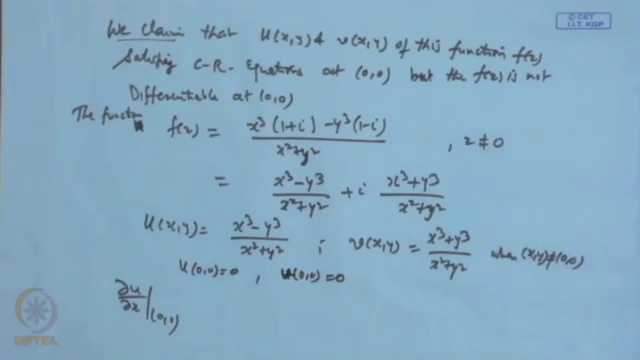 © CET
I.I.T. KGP
We Claim that u(x,y) & v(x,y) of this function f(z)
Satisfies C-R- Equations at (0,0) but the f(z) is not
Differentiable at (0,0)
The function f(z) = x³(1+i) - y³(1-i) / x²+y² , z≠0
= x³-y³ / x²+y² + i x³+y³ / x²+y²
u(x,y) = x³-y³ / x²+y² ; v(x,y) = x³+y³ / x²+y² when (x,y)≠(0,0)
u(0,0)=0 , v(0,0)=0
∂u/∂x |(0,0)
NPTEL